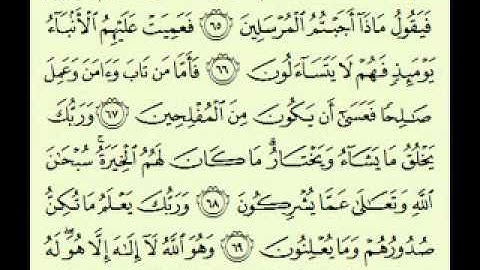 فَيَقُولُ مَاذَآ أَجَبْتُمُ ٱلْمُرْسَلِينَ ٦٥ فَعَمِيَتْ عَلَيْهِمُ ٱلْأَنۢبَآءُ
يَوْمَئِذٍ فَهُمْ لَا يَتَسَآءَلُونَ ٦٦ فَأَمَّا مَن تَابَ وَءَامَنَ وَعَمِلَ
صَٰلِحًا فَعَسَىٰٓ أَن يَكُونَ مِنَ ٱلْمُفْلِحِينَ ٦٧ وَرَبُّكَ
يَخْلُقُ مَا يَشَآءُ وَيَخْتَارُ ۗ مَا كَانَ لَهُمُ ٱلْخِيَرَةُ ۚ سُبْحَٰنَ
ٱللَّهِ وَتَعَٰلَىٰ عَمَّا يُشْرِكُونَ ٦٨ وَرَبُّكَ يَعْلَمُ مَا تُكِنُّ
صُدُورُهُمْ وَمَا يُعْلِنُونَ ٦٩ وَهُوَ ٱللَّهُ لَآ إِلَٰهَ إِلَّا هُوَ ۖ لَهُ